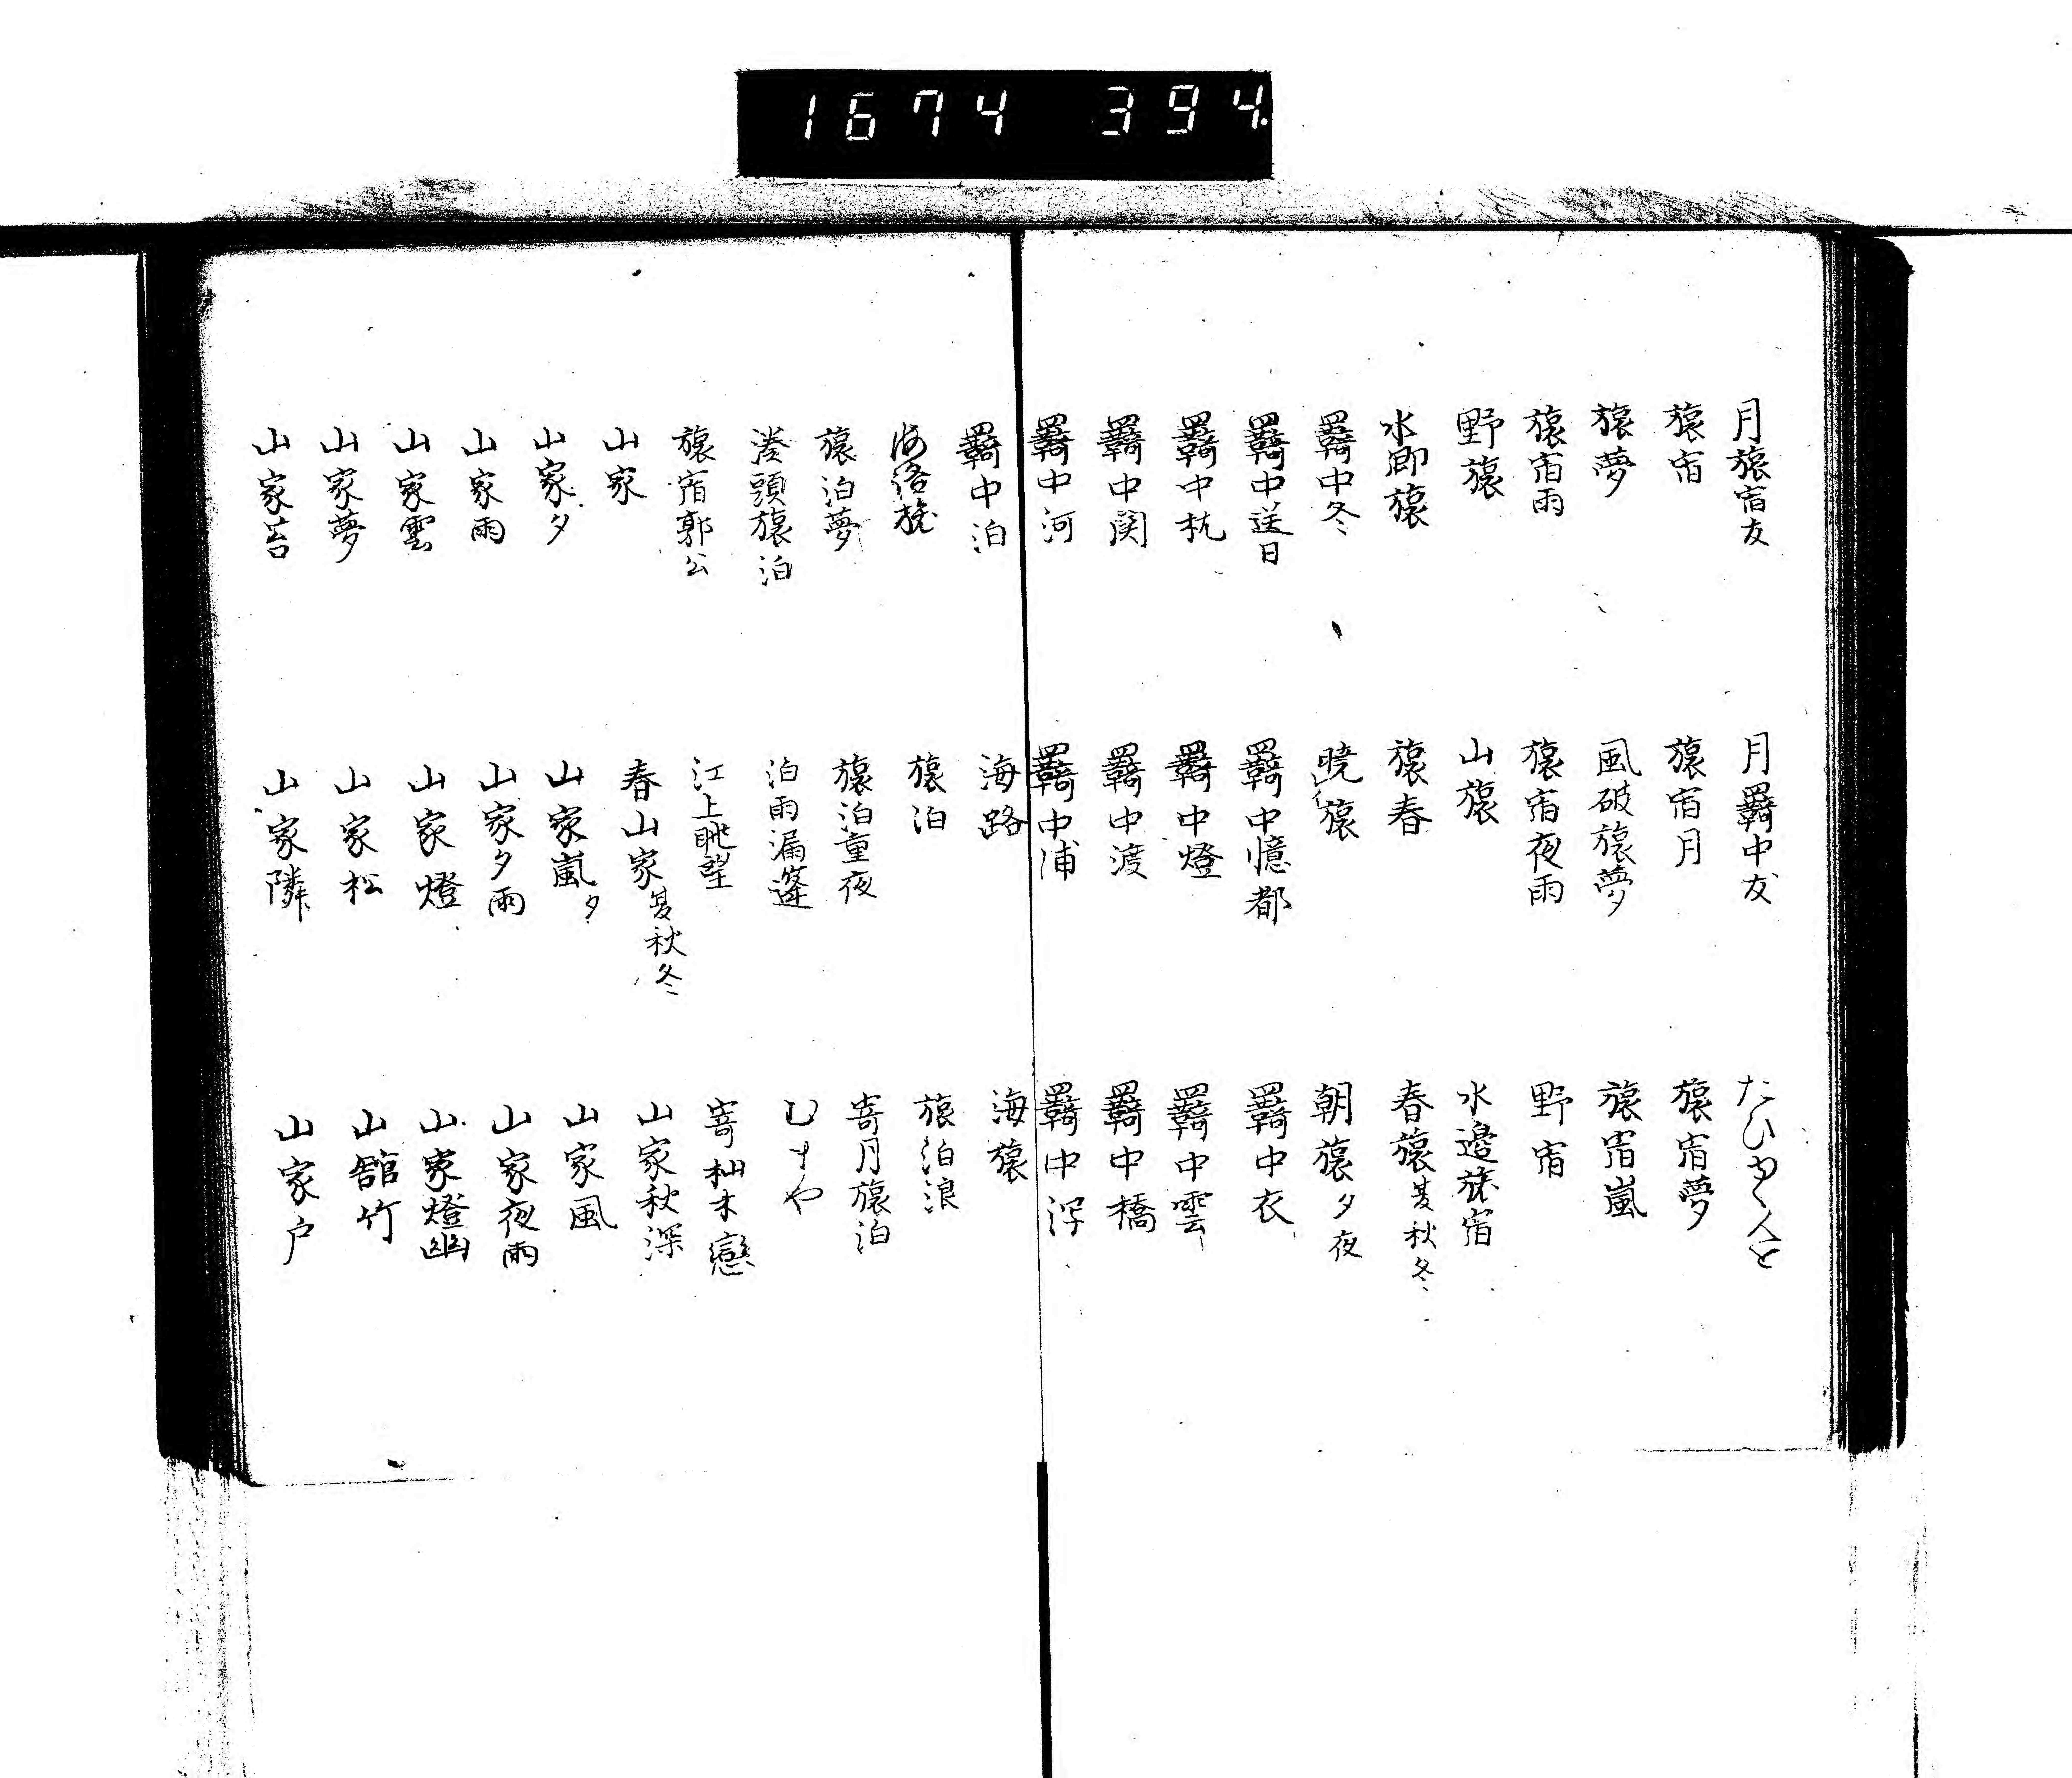 1674 394
月旅宿友 月羇中友 たひゆく人を
旅宿 旅宿月 旅宿夢
旅夢 風破旅夢 旅宿嵐
旅宿雨 旅宿夜雨 野宿
野旅 山旅 水邊旅宿
水郷旅 旅春 春旅夏秋冬
羇中冬 暁旅 朝旅夕夜
羇中送日 羇中憶都 羇中衣
羇中枕 羇中燈 羇中雲
羇中関 羇中渡 羇中橋
羇中河 羇中浦 羇中
羇中泊 海路 海旅
海路旅 旅泊 旅泊浪
旅泊夢 旅泊重夜 寄月旅泊
湊頭旅泊 泊雨漏篷 むまや
旅宿郭公 江上眺望 寄杣木戀
山家 春山家夏秋冬 山家秋深
山家夕 山家嵐夕 山家風
山家雨 山家夕雨 山家夜雨
山家雲 山家燈 山家燈幽
山家夢 山家松 山舘竹
山家苔 山家隣 山家戸